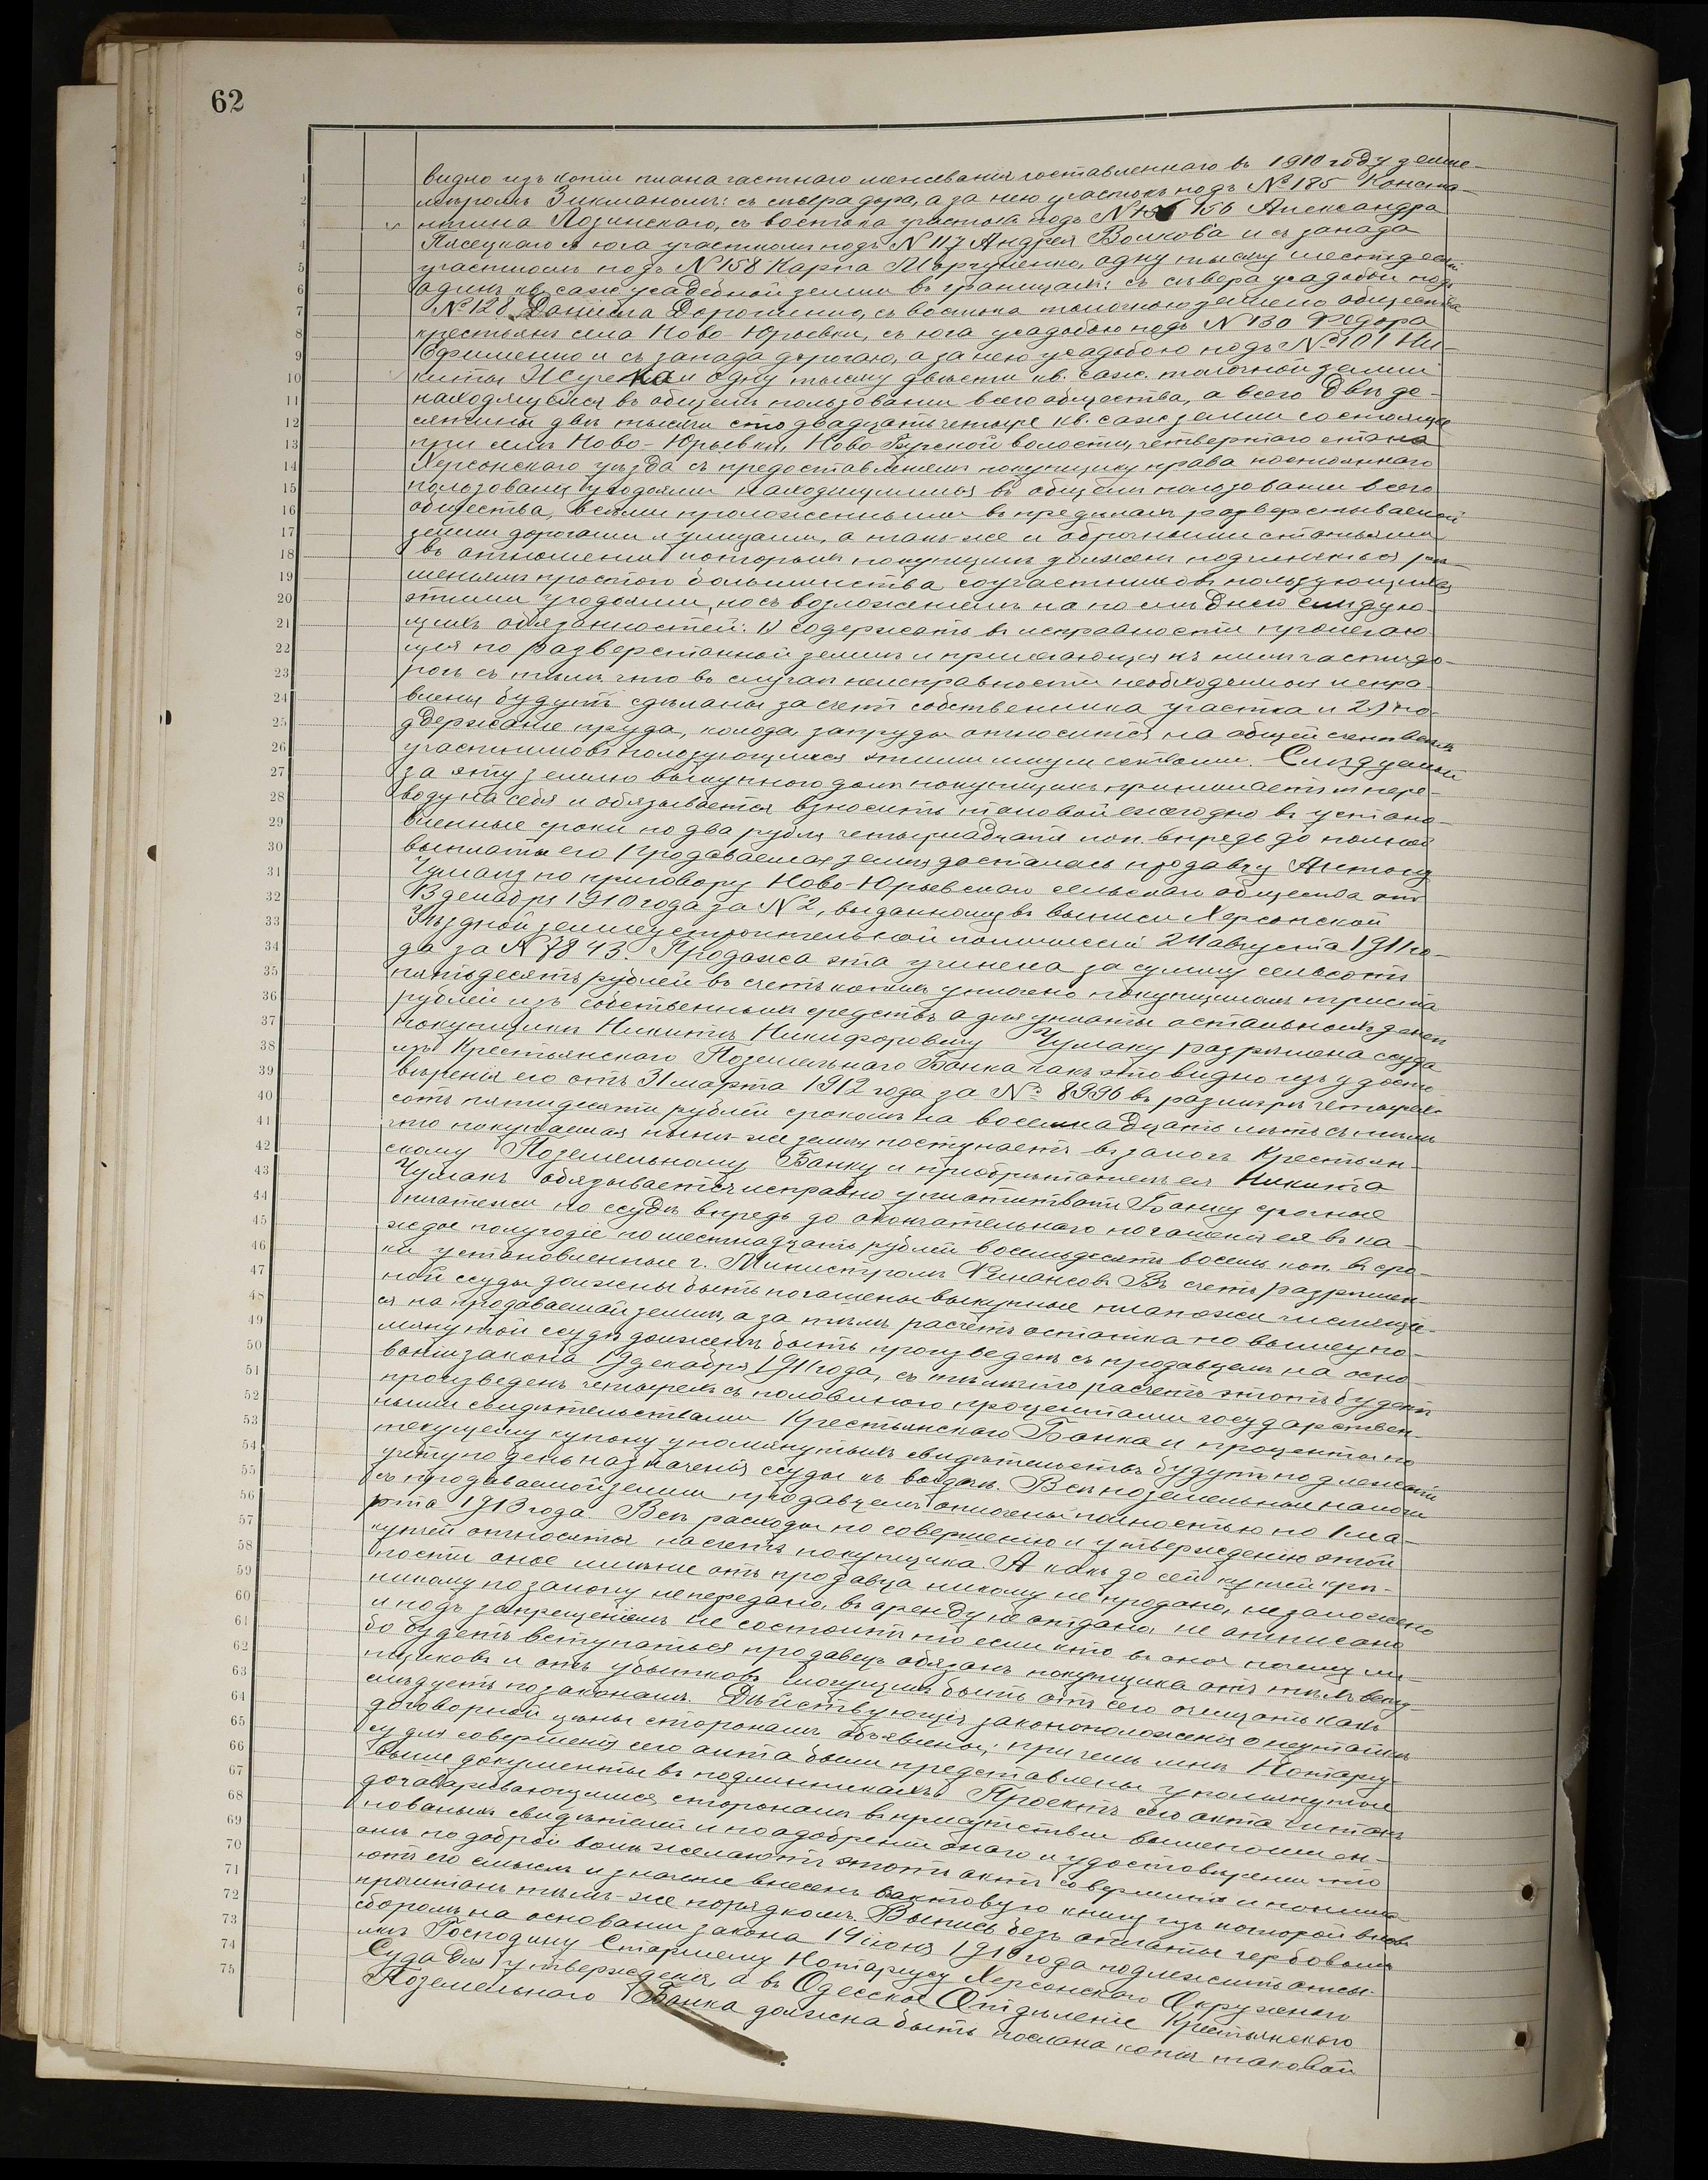 62
видно изъ копіи плана частнаго межеванія составленнаго въ 1910 году земле-
мѣромъ Зикманомъ: съ сѣвера дора, а за нею участокъ подъ №185 Конста-
нтина Лозинскаго, съ востока участокъ подъ № 156 Александра
Пясецкаго съ юга участкомъ подъ №117 Андрея Волкова и съ запада
участкомъ подъ №158 Карпа Марущенко, одну тысячу шестьдесятъ
одинъ кв. саж. усадебной земли въ границахъ: съ сѣвера усадьбы подъ
№128 Даніила Дорошенко, съ востока толочною землею общества
крестьянъ села Ново-Юрьевки, съ юга усадьбою подъ №130 Федора
Ефименко и съ запада дорогаю, а за нею усадьбою подъ №101 Ни-
киты и одну тысячу двѣсти кв. саж. толочной земли
находящейся въ общемъ пользованіи всего общества, а всего двѣ де-
сятины двѣ тысячи сто двадцать четыре кв. саж. земли состоящее
при селѣ Ново-Юрьевки, Ново-Бугской волости, четвертаго стана
Херсонскаго уѣзда съ предоставленіемъ покупщику права постояннаго
пользованія угодьями находящимися въ общемъ пользованіи всего
общества, всѣми проложенными въ предѣлахъ разверстываемой
земли дорогами и улицами, а такъ-же и оброчными статьями
въ отношеніи которыхъ покупщикъ долженъ подчиняться рѣ-
шеніямъ простого большинства соучастниковъ пользующихся
этими угодьями, но съ возложеніемъ на послѣднею слѣдую-
щихъ обязанностей: 1) содержать въ исправности пролегаю-
щія по разверстанной землѣ и прилегающія къ нимъ части до-
рогъ съ тѣмъ что въ случаѣ неисправности необходимыя испра-
вленія будутъ сдѣланы за счетъ собственника участка и 2) по-
ддержаніе пруда, колодца, запруды относится на общей счетъ всѣхъ
участниковъ пользующихся этими имуществами. Слѣдуемый
за эту землю выкупного долга покупщикъ принимаетъ пере-
воду на себя и обязывается взносить таковой ежегодно въ устано-
вленные сроки по два рубля четырнадцати коп. впредь до полной
выплаты его. Продаваемая земля досталась продавцу Антону
Чумаку по приговору Ново-Юрьевскаго сельскаго общества отъ
13 декабря 1910 года за №2, выданному въ выписи Херсонской
Уѣздной землеустроительной коммиссіи 24 августа 1911 го-
да за №7843. Продажа эта учинена за сумму семьсотъ
пятьдесятъ рублей въ счетъ коихъ уплачено покупщикомъ триста
рублей изъ собственныхъ средствъ а для уплаты остальныхъ денегъ
покупщику Никитѣ Никифоровичу Чумаку разрѣшена ссуда
изъ Крестьянскаго Поземельнаго Банка какъ это видно изъ удосто-
вѣренія его отъ 31 марта 1912 года за № 8996 въ размѣрѣ четырех-
сотъ пятидесяти рублей срокомъ на восемнадцать лѣтъ съ тѣмъ
что покупаемая нынѣ-же земля поступаетъ въ залогъ Крестьян-
скому Поземельному Банку и пріобрѣтатель ея Никита
Чумакъ обязывается исправно уплатитвать Банку срочные
платежи по ссудѣ впредь до окончательнаго погашенія ея въ ка-
ждое полугодіе по шестнадцать рублей восемьдесятъ восемь коп. въ сро-
ки установленные г. Министромъ Финансовъ. Въ счетъ разрѣшен-
ной ссуды должны быть погашены выкупные платежи числящіе-
ся на продаваемой землѣ, а за тѣмъ расчетъ остатка по вышеупо-
мянутой ссудѣ долженъ быть произведенъ съ продавцемъ на осно-
ваніи закона 19 декабря 1911 года, съ тѣмъ что расчетъ этотъ будетъ
произведенъ четырехъ съ половиною процентами государствен-
ными свидѣтельствами Крестьянскаго Банка и проценты по
текущему купону упомянутыхъ свидѣтельствъ будутъ подлежать
учету по день назначенія ссуды къ выдачѣ. Всѣ поземельные налоги
съ продаваемой земли продавцемъ оплочены полностью по 1 ма-
рта 1913 года. Всѣ расходы по совершенію и утвержденію этой
купчей относятся на счетъ покупщика. А какъ до сей купчей крѣ-
пости оное имѣніе отъ продавца никому не продано, не заложено
никому по закону не передано, въ аренду не отдано, не отписано
и подъ запрещеніемъ не состоитъ то если кто въ оное почему ли-
бо будетъ вступаться продавецъ обязанъ покупщика отъ тѣхъ всту-
пщиковъ и отъ убытковъ могущихъ быть отъ сего очищать какъ
слѣдуетъ по законамъ. Дѣйствующія законоположенія о неутайкѣ
договорной цѣны сторонамъ объявлены; при чемъ мнѣ Нотаріу-
су для совершенія сего акта были представлены упомянутые
выше документы въ подлинникахъ. Проектъ сего акта читанъ
договаривающимся сторонамъ въ присутствіи вышепоимен-
нованымъ свидѣтелей и по одобреніи онаго и удостовѣреніи что
они по доброй волѣ желаютъ этотъ актъ совершить и понима-
ютъ его смыслъ и значеніе внесенъ въ актовую книгу изъ которой вновь
прочитанъ тѣмъ-же порядкомъ. Выпись безъ оплаты гербовымъ
сборомъ на основаніи закона 14 іюня 1910 года подлежитъ отсы-
лкѣ Господину Старшему Нотаріусу Херсонскаго Окружнаго
Суда для утвержденія, а въ Одесское Отдѣленіе Крестьянскаго
Поземельнаго Банка должна быть послана копія таковой